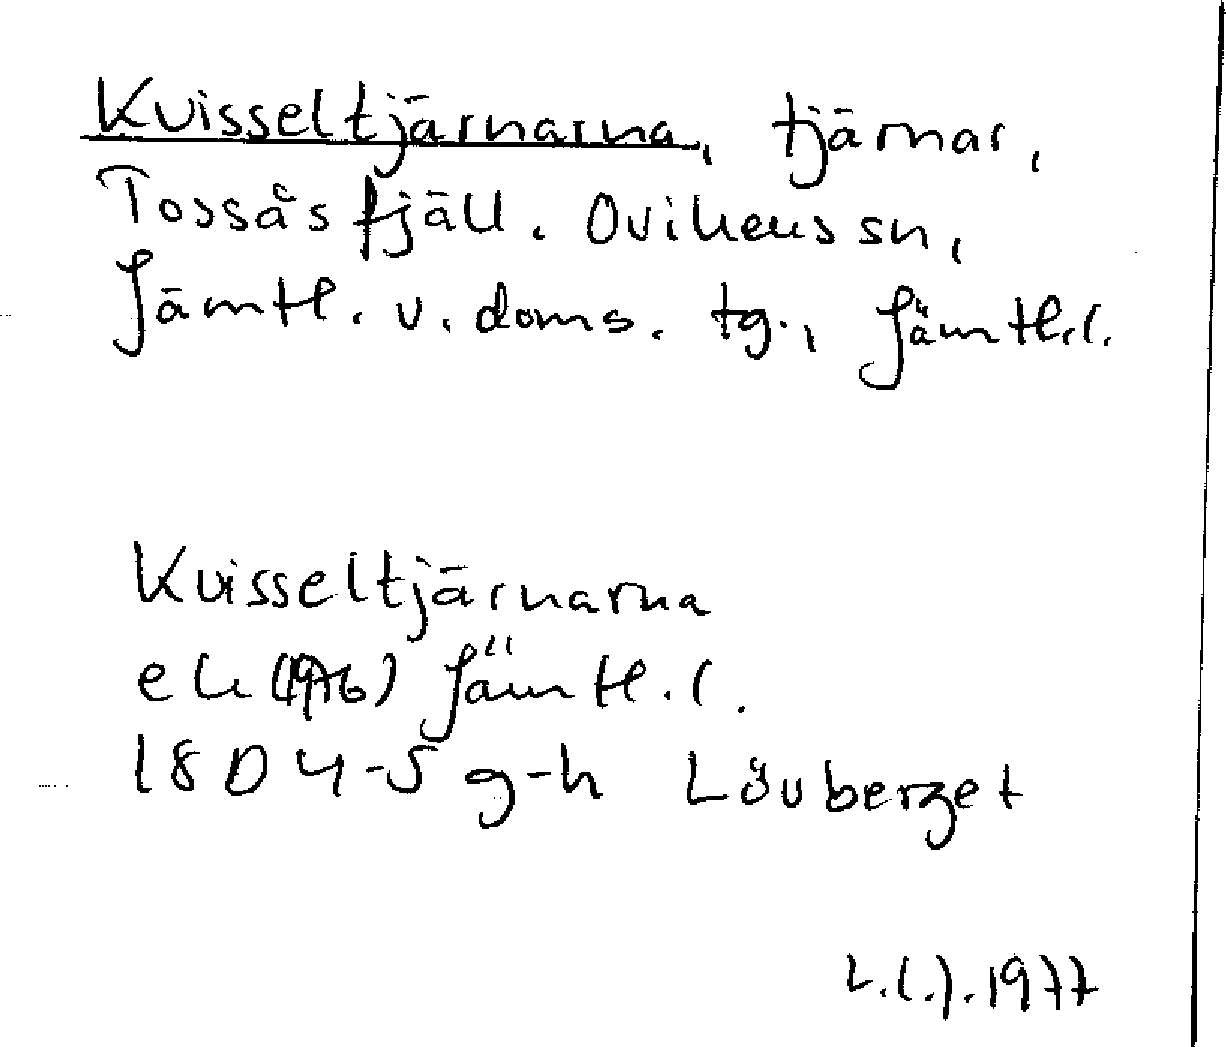 Kvisseltjärnarna, tjärnar,
Tossåsfjäll. Ovikens sn,
Jämtl. v. doms. tg., Jämtl.l.
Kvisseltjärnarna
ek (1976) Jämtl.l.
18 D 4-5 g-h Lövberget
L.(.).1977